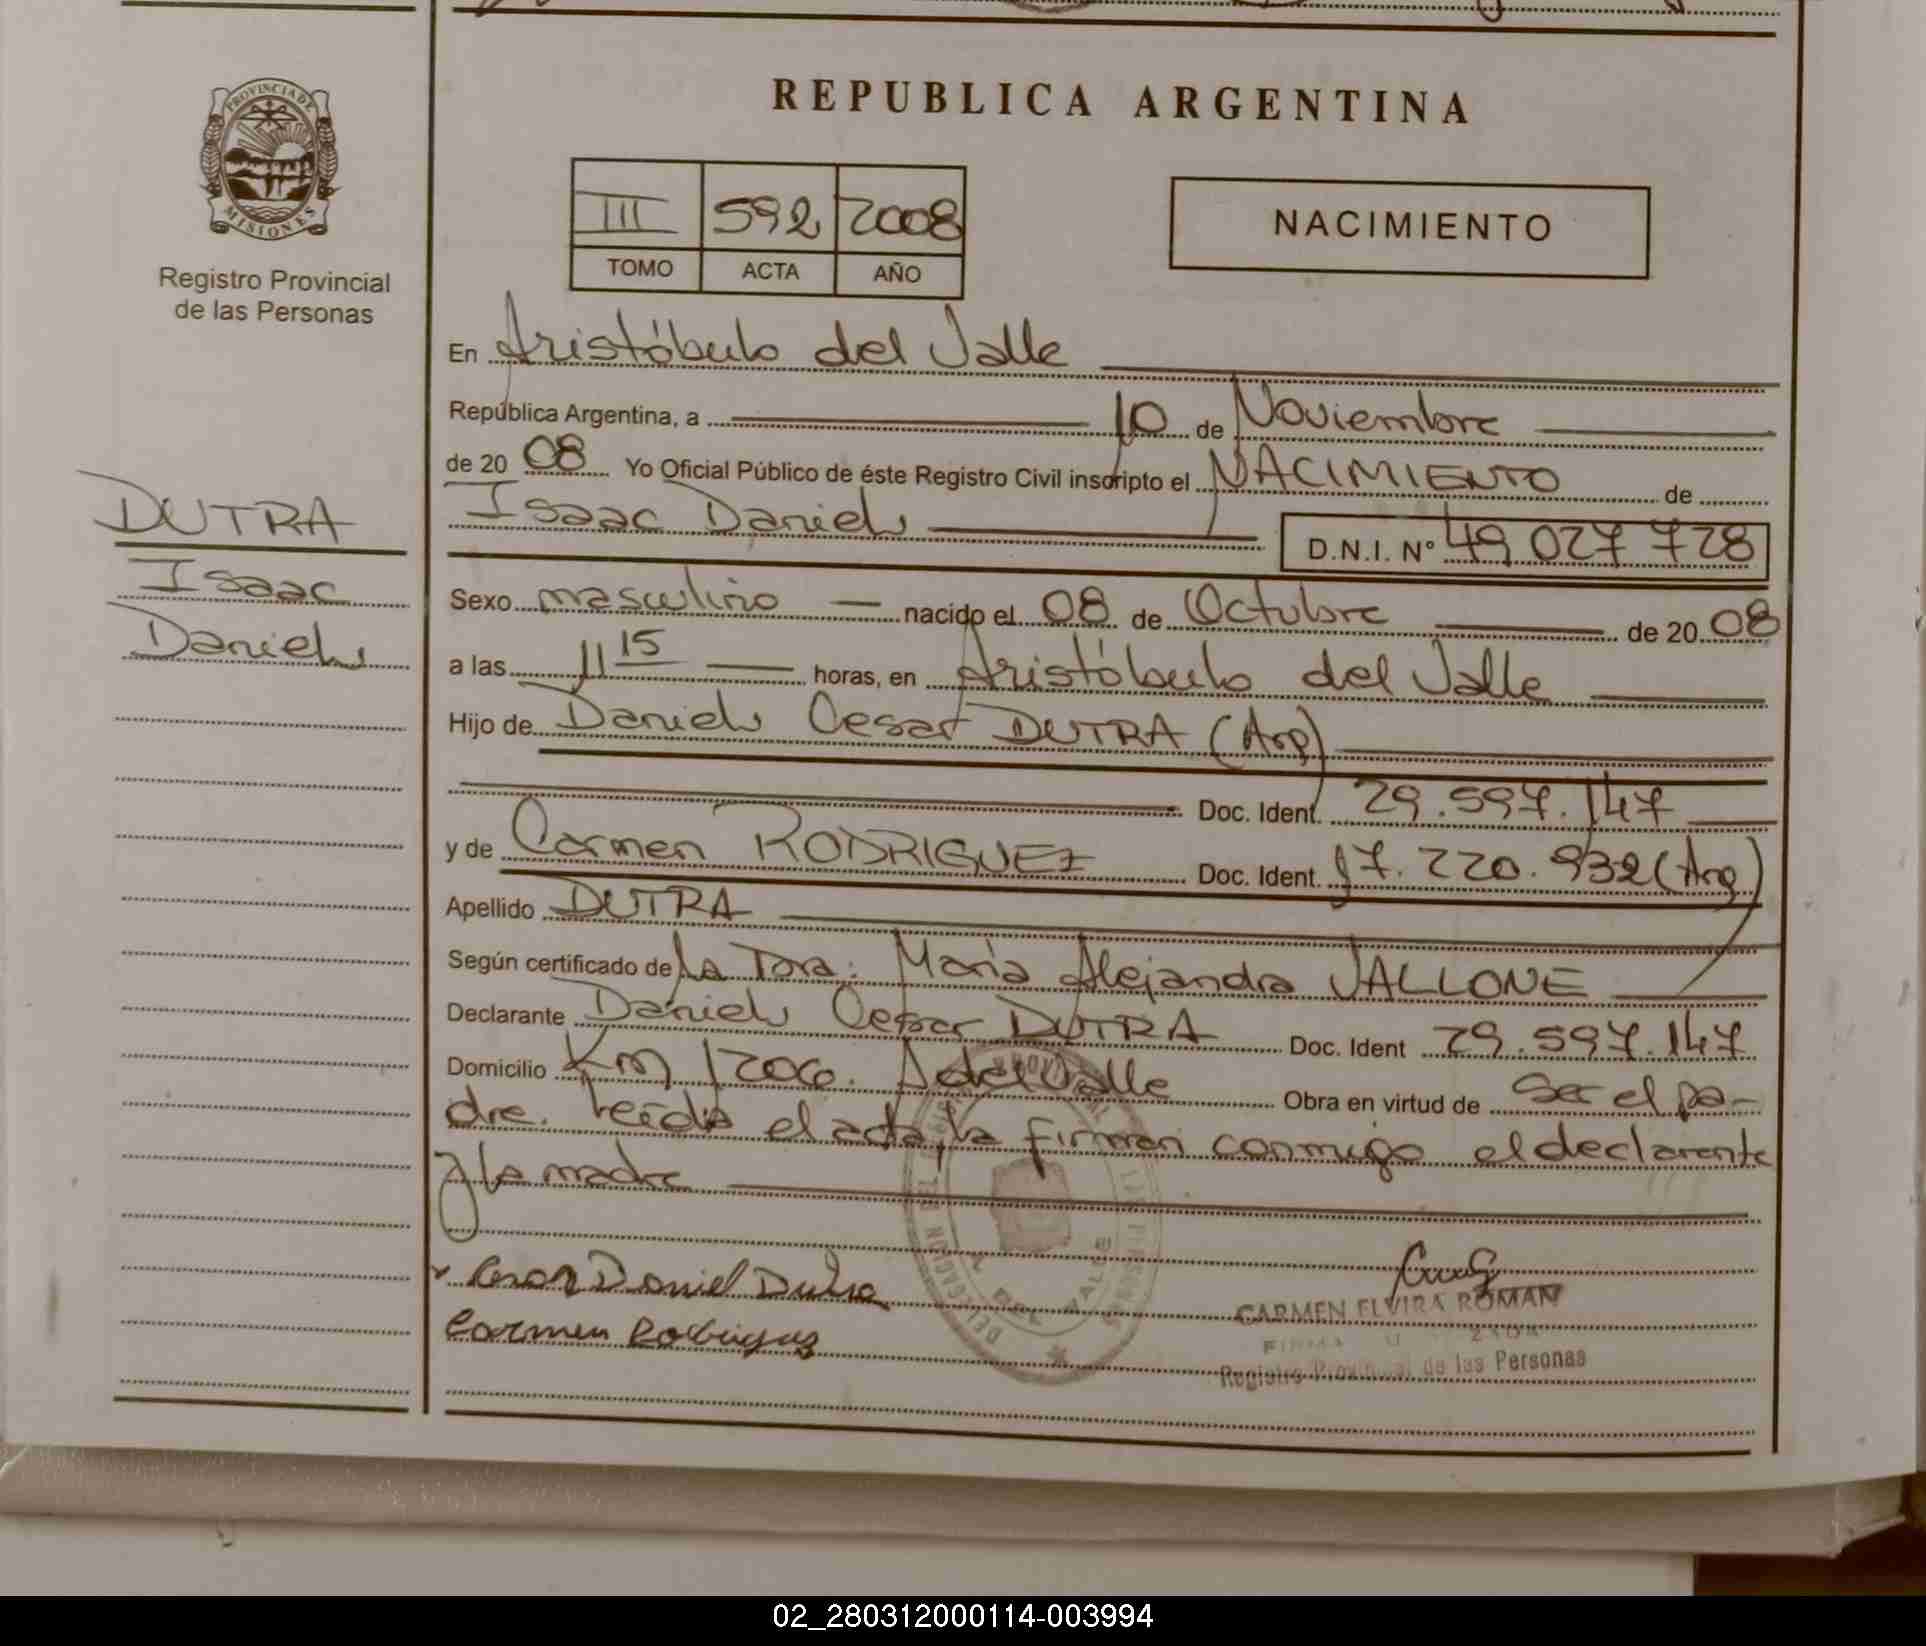 PROVINCIA DE
MISIONES
Registro Provincial
de las Personas
DUTRA
Isaac
Daniel
REPUBLICA ARGENTINA
III 592 2008
TOMO ACTA AÑO
NACIMIENTO
En Aristóbulo del Valle
República Argentina, a 10 de Noviembre
de 20 08 Yo Oficial Público de éste Registro Civil inscripto el NACIMIENTO de
Isaac Daniel D.N.I. N° 49 027 728
Sexo masculino nacido el 08 de Octubre de 20 08
a las 11 15 horas, en Aristóbulo del Valle
Hijo de Daniel Cesar DUTRA (Arg)
Doc. Ident. 29.597.147
y de Carmen RODRIGUEZ Doc. Ident. 17.220.932 (Arg)
Apellido DUTRA
Según certificado de la Dra. María Alejandra VALLONE
Declarante Daniel Cesar DUTRA Doc. Ident 29.597.147
Domicilio Km 1200. A del Valle Obra en virtud de ser el pa-
dre. Leída el acta, la firman conmigo el declarante
y la madre
Cesar Daniel Dutra
Carmen Rodriguez
CARMEN ELVIRA ROMAN
Registro Provincial de las Personas
02_280312000114-003994